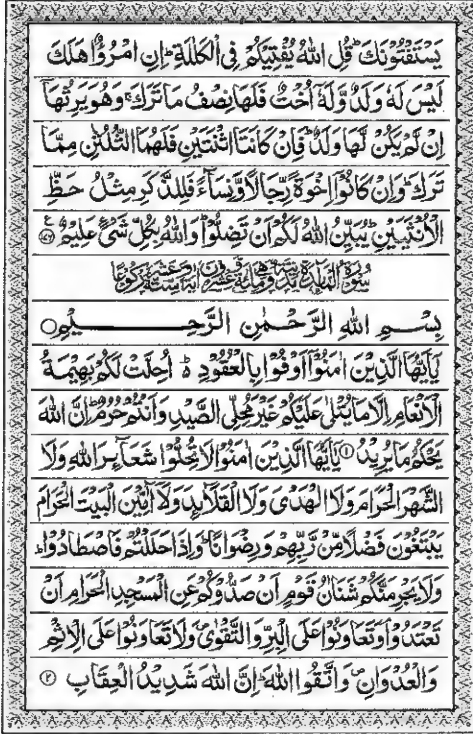 يَسْتَفْتُوْنَكَ ؕ قُلِ اللّٰهُ يُفْتِيْكُمْ فِى الْكَلٰلَةِ ؕ اِنِ امْرُؤٌا هَلَكَ
لَيْسَ لَهٗ وَلَدٌ وَّلَهٗۤ اُخْتٌ فَلَهَا نِصْفُ مَا تَرَكَ ۚ وَهُوَ يَرِثُهَاۤ
اِنْ لَّمْ يَكُنْ لَّهَا وَلَدٌ ؕ فَاِنْ كَانَتَا اثْنَتَيْنِ فَلَهُمَا الثُّلُثٰنِ مِمَّا
تَرَكَ ؕ وَاِنْ كَانُوْۤا اِخْوَةً رِّجَالًا وَّنِسَآءً فَلِلذَّكَرِ مِثْلُ حَظِّ
الْاُنْثَيَيْنِ ؕ يُبَيِّنُ اللّٰهُ لَكُمْ اَنْ تَضِلُّوْا ؕ وَاللّٰهُ بِكُلِّ شَىْءٍ عَلِيْمٌ ﴿۱۷۶﴾ ع
بِسْمِ اللّٰهِ الرَّحْمٰنِ الرَّحِيْمِ
يٰۤاَيُّهَا الَّذِيْنَ اٰمَنُوْۤا اَوْفُوْا بِالْعُقُوْدِ ؕ اُحِلَّتْ لَكُمْ بَهِيْمَةُ
الْاَنْعَامِ اِلَّا مَا يُتْلٰى عَلَيْكُمْ غَيْرَ مُحِلِّى الصَّيْدِ وَاَنْتُمْ حُرُمٌ ؕ اِنَّ اللّٰهَ
يَحْكُمُ مَا يُرِيْدُ ﴿۱﴾ يٰۤاَيُّهَا الَّذِيْنَ اٰمَنُوْا لَا تُحِلُّوْا شَعَآئِرَ اللّٰهِ وَلَا
الشَّهْرَ الْحَرَامَ وَلَا الْهَدْىَ وَلَا الْقَلَآئِدَ وَلَاۤ آٰمِّيْنَ الْبَيْتَ الْحَرَامَ
يَبْتَغُوْنَ فَضْلًا مِّنْ رَّبِّهِمْ وَرِضْوَانًا ؕ وَاِذَا حَلَلْتُمْ فَاصْطَادُوْا ؕ
وَلَا يَجْرِمَنَّكُمْ شَنَاٰنُ قَوْمٍ اَنْ صَدُّوْكُمْ عَنِ الْمَسْجِدِ الْحَرَامِ اَنْ
تَعْتَدُوْا ۘ وَتَعَاوَنُوْا عَلَى الْبِرِّ وَالتَّقْوٰى ۪ وَلَا تَعَاوَنُوْا عَلَى الْاِثْمِ
وَالْعُدْوَانِ ۪ وَاتَّقُوا اللّٰهَ ؕ اِنَّ اللّٰهَ شَدِيْدُ الْعِقَابِ ﴿۲﴾